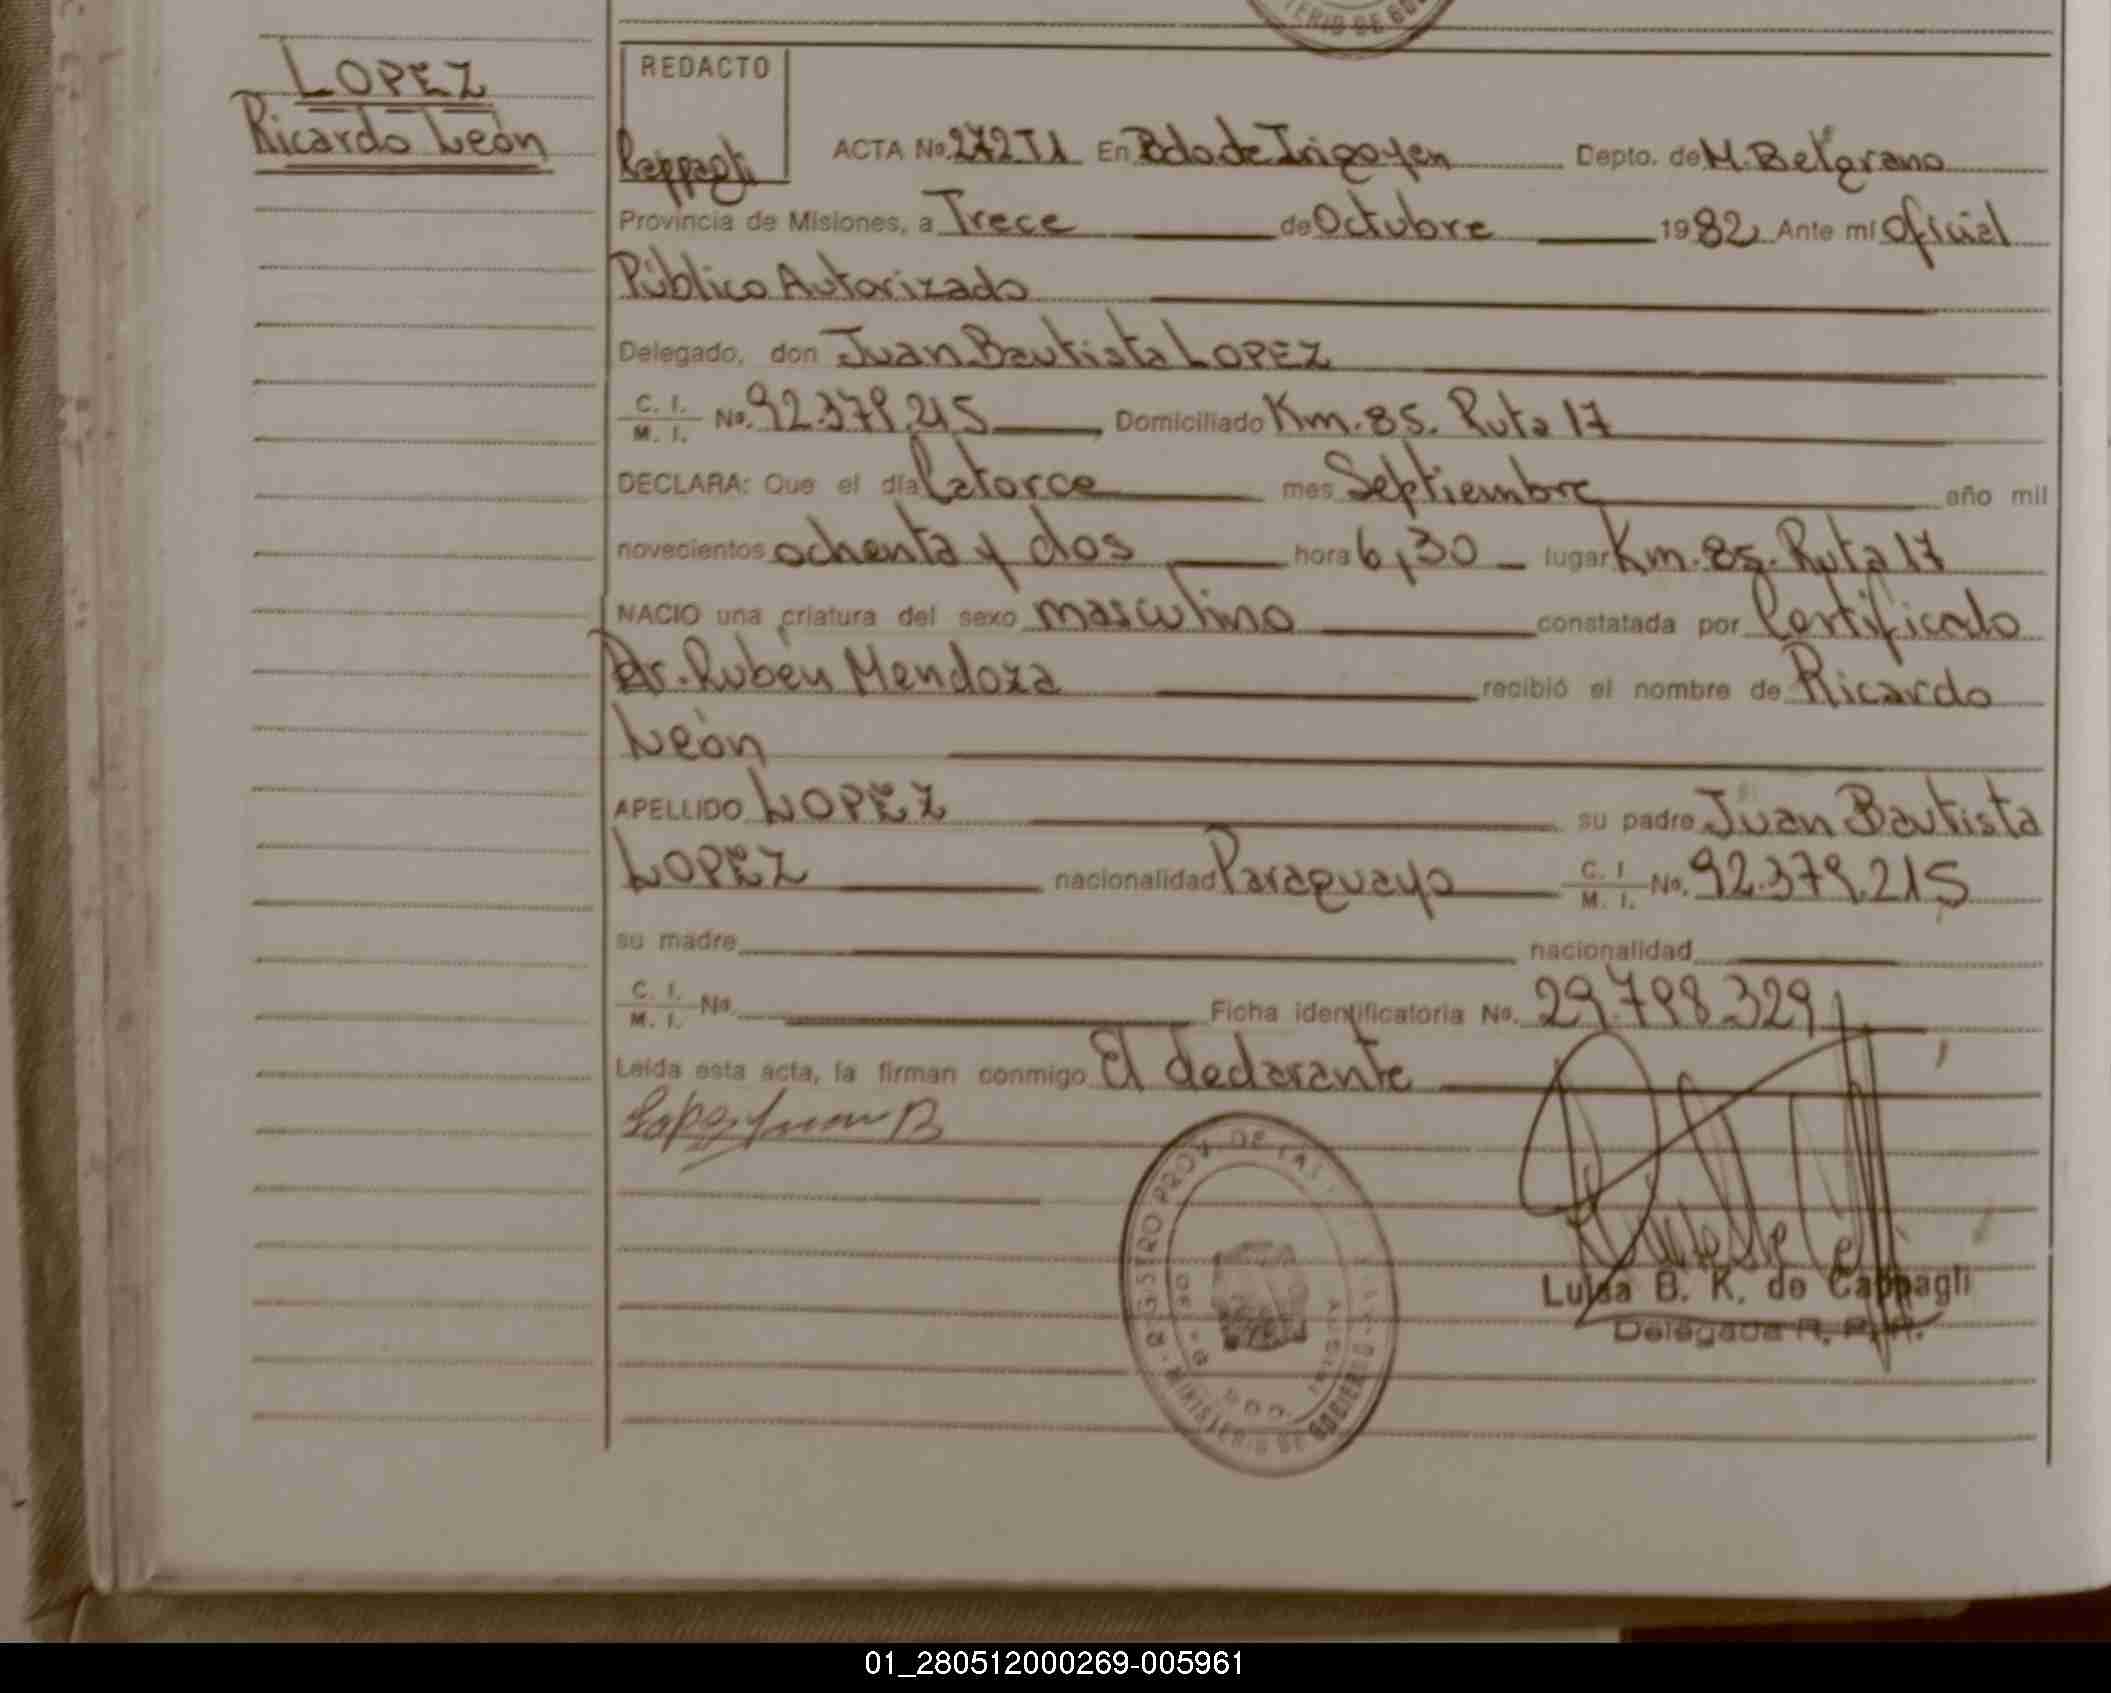 LOPEZ
Ricardo León
REDACTO
Cappagli
ACTA No. 272 T1 En Bdo de Irigoyen Depto. de M. Belgrano
Provincia de Misiones, a Trece de Octubre 1982 Ante mí Oficial
Público Autorizado
Delegado, don Juan Bautista LOPEZ
C. I. M. I. No. 92.379.215 Domiciliado Km. 85. Ruta 17
DECLARA: Que el día Catorce mes Septiembre año mil
novecientos ochenta y dos hora 6,30 lugar Km. 85. Ruta 17
NACIO una criatura del sexo masculino constatada por Certificado
Dr. Rubén Mendoza recibió el nombre de Ricardo
León
APELLIDO LOPEZ su padre Juan Bautista
LOPEZ nacionalidad Paraguayo C. I. M. I. No. 92.379.215
su madre nacionalidad
C. I. M. I. No. Ficha identificatoria No. 29.798.329
Leída esta acta, la firman conmigo El declarante
Lopez Juan B
REGISTRO PROV. DE LAS
MINISTERIO DE GOBIERNO
Luisa B. K. de Cappagli
Delegada R. P. P.
01_280512000269-005961